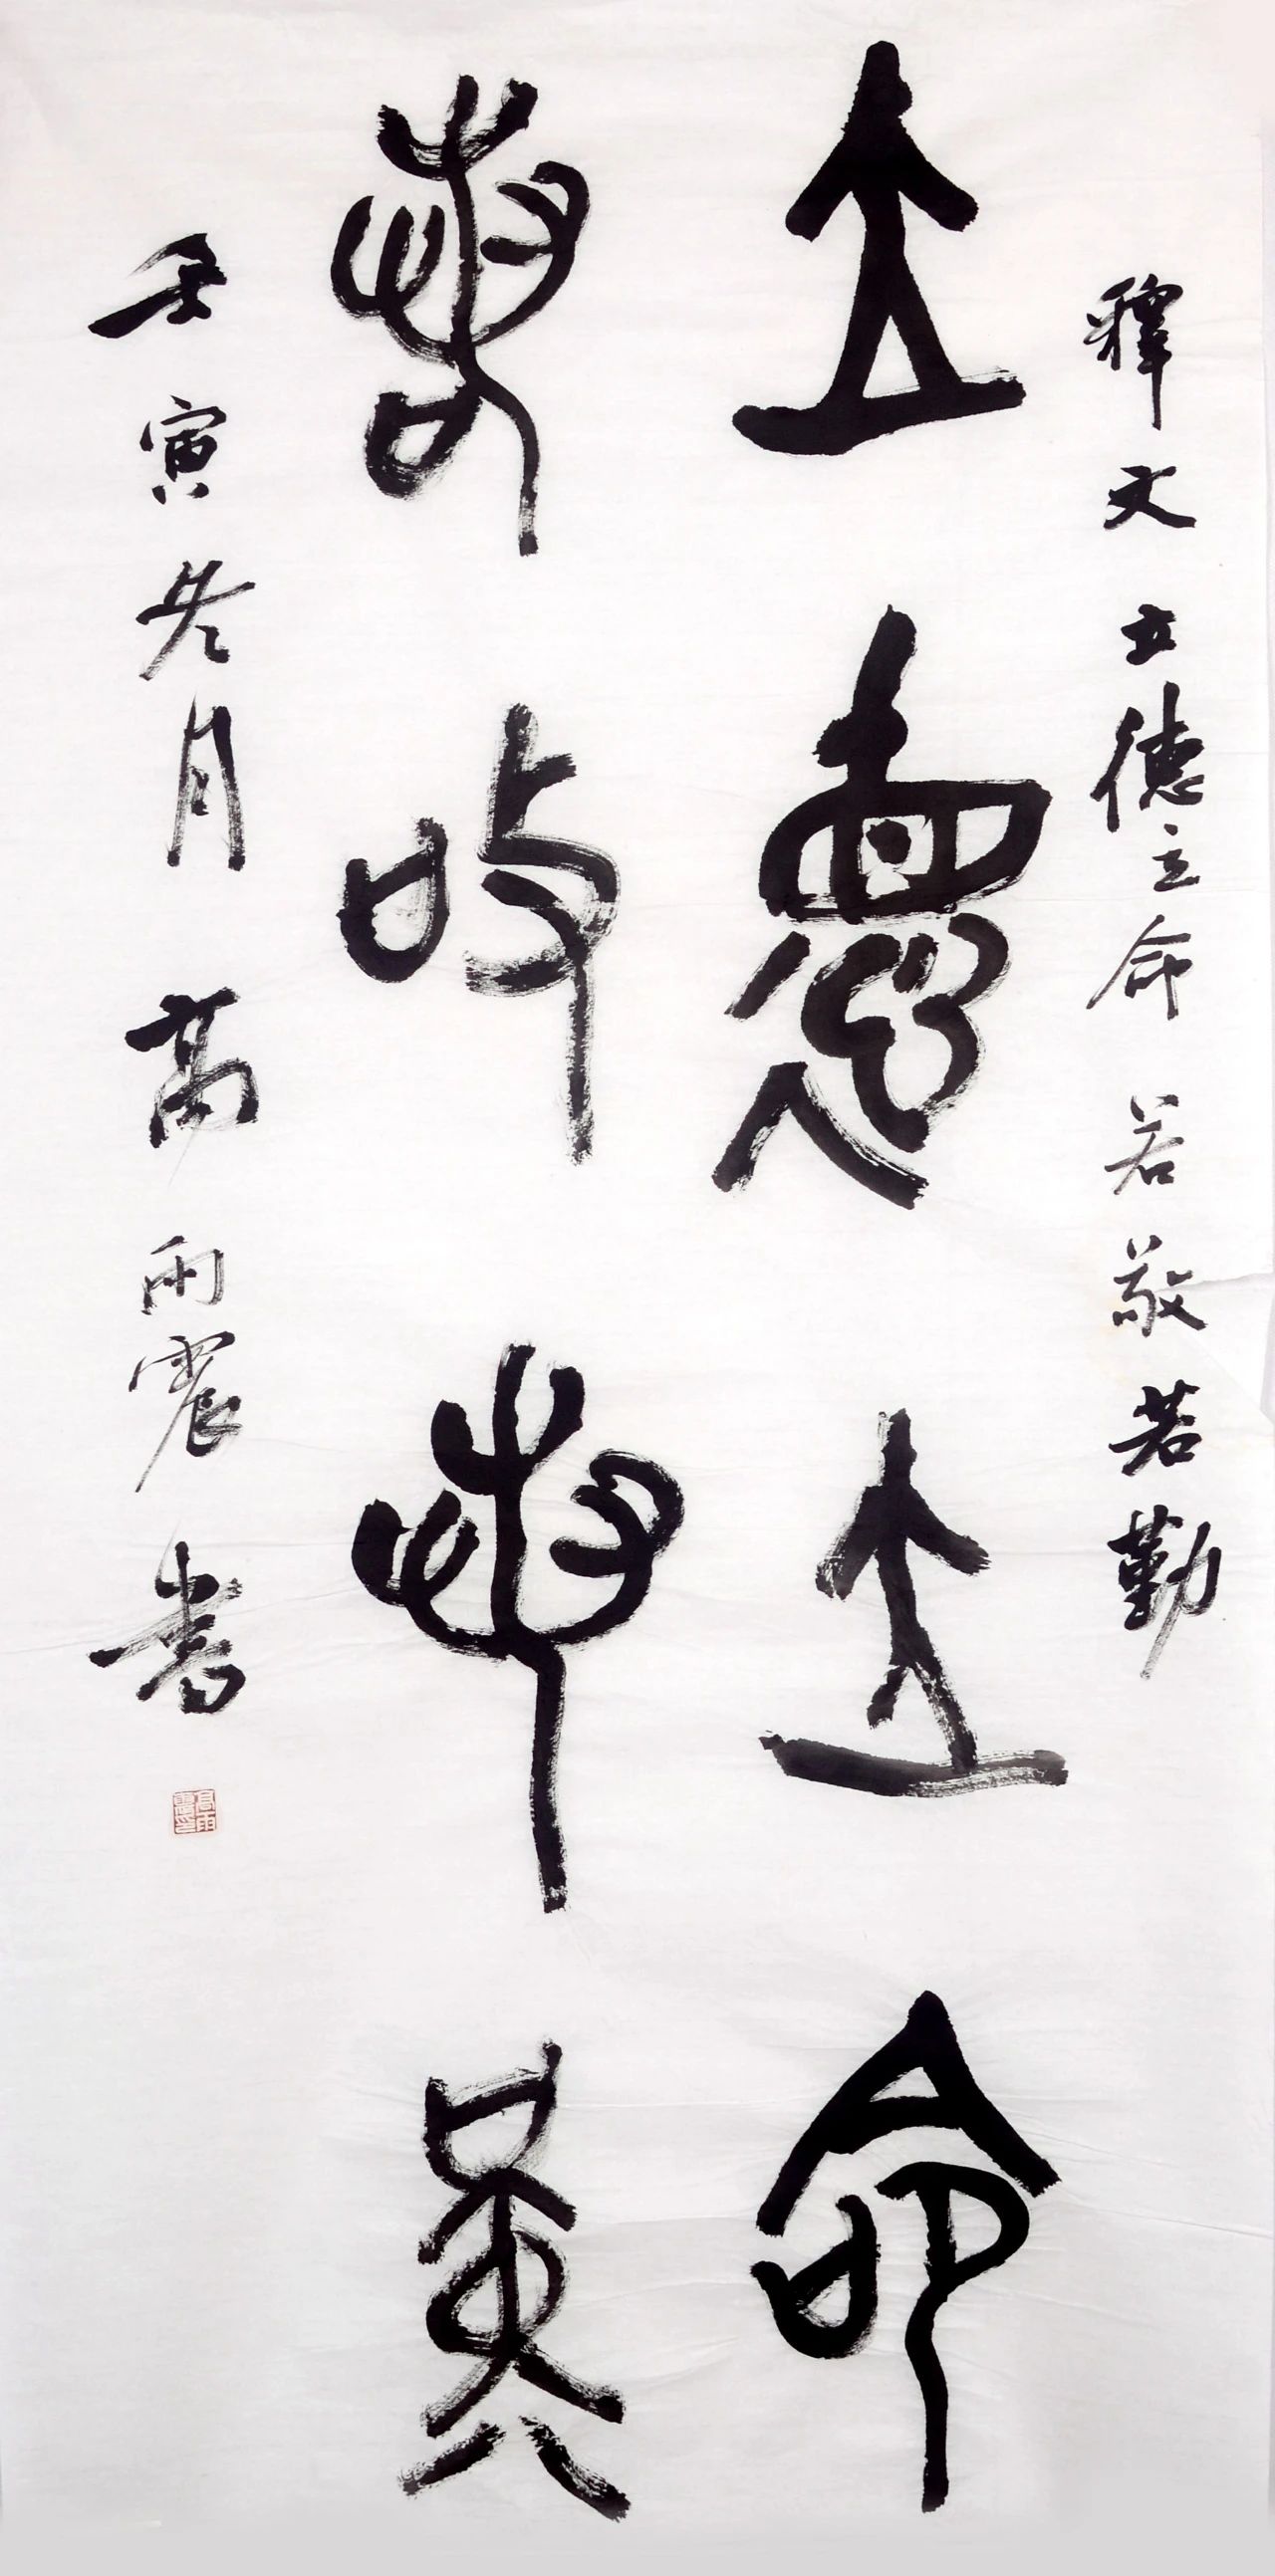 釋文 立德立命 若敬若勤
立德立命
若敬若勤
壬寅冬月 高雨震書
高雨震印